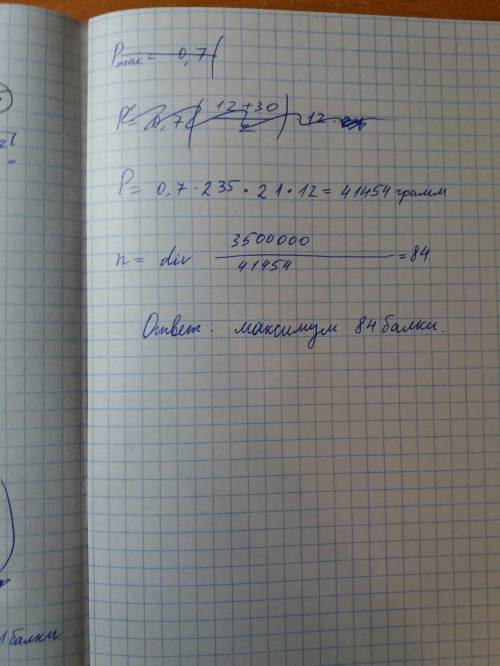 P max = 0,7(
P = 0,7 (12+30 / 2) · 12
P = 0,7 · 235 · 21 · 12 = 41454 грамм
n = div 3500000 / 41454 = 84
Ответ: максимум 84 балки.
1 балки